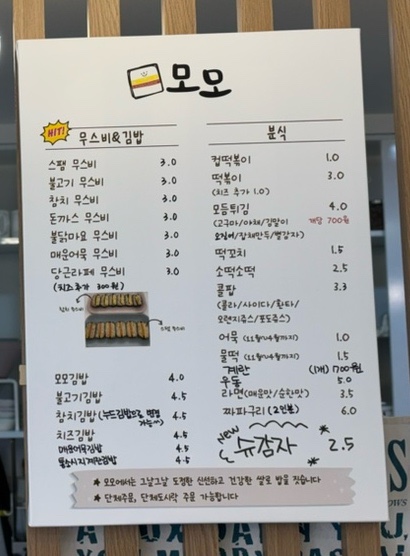 모모
HIT!
무스비&김밥
스팸 무스비 3.0
불고기 무스비 3.0
참치 무스비 3.0
돈까스 무스비 3.0
불닭마요 무스비 3.0
매운어묵 무스비 3.0
당근라페 무스비 3.0
(치즈 추가 300원)
모모김밥 4.0
불고기김밥 4.5
참치김밥 (누드김밥으로 변경 가능) 4.5
치즈김밥 4.5
매운어묵김밥 4.5
통소시지계란김밥 4.5
분식
컵떡볶이 1.0
떡볶이 3.0
(치즈 추가 1.0)
모듬튀김 4.0
(고구마/야채/김말이 개당 700원
오징어/잡채만두/빨감자)
떡꼬치 1.5
소떡소떡 2.5
콜팝 3.3
(콜라/사이다/환타/
오렌지쥬스/포도쥬스)
어묵 (11월~4월까지) 1.0
물떡 (11월~4월까지) 1.5
계란 (1개) 700원
우동 5.0
라면(매운맛/순한맛) 3.5
짜파구리(2인분) 6.0
NEW 슈감자 2.5
★ 모모에서는 그날그날 도정한 신선하고 건강한 쌀로 밥을 짓습니다
★ 단체주문, 단체도시락 주문 가능합니다